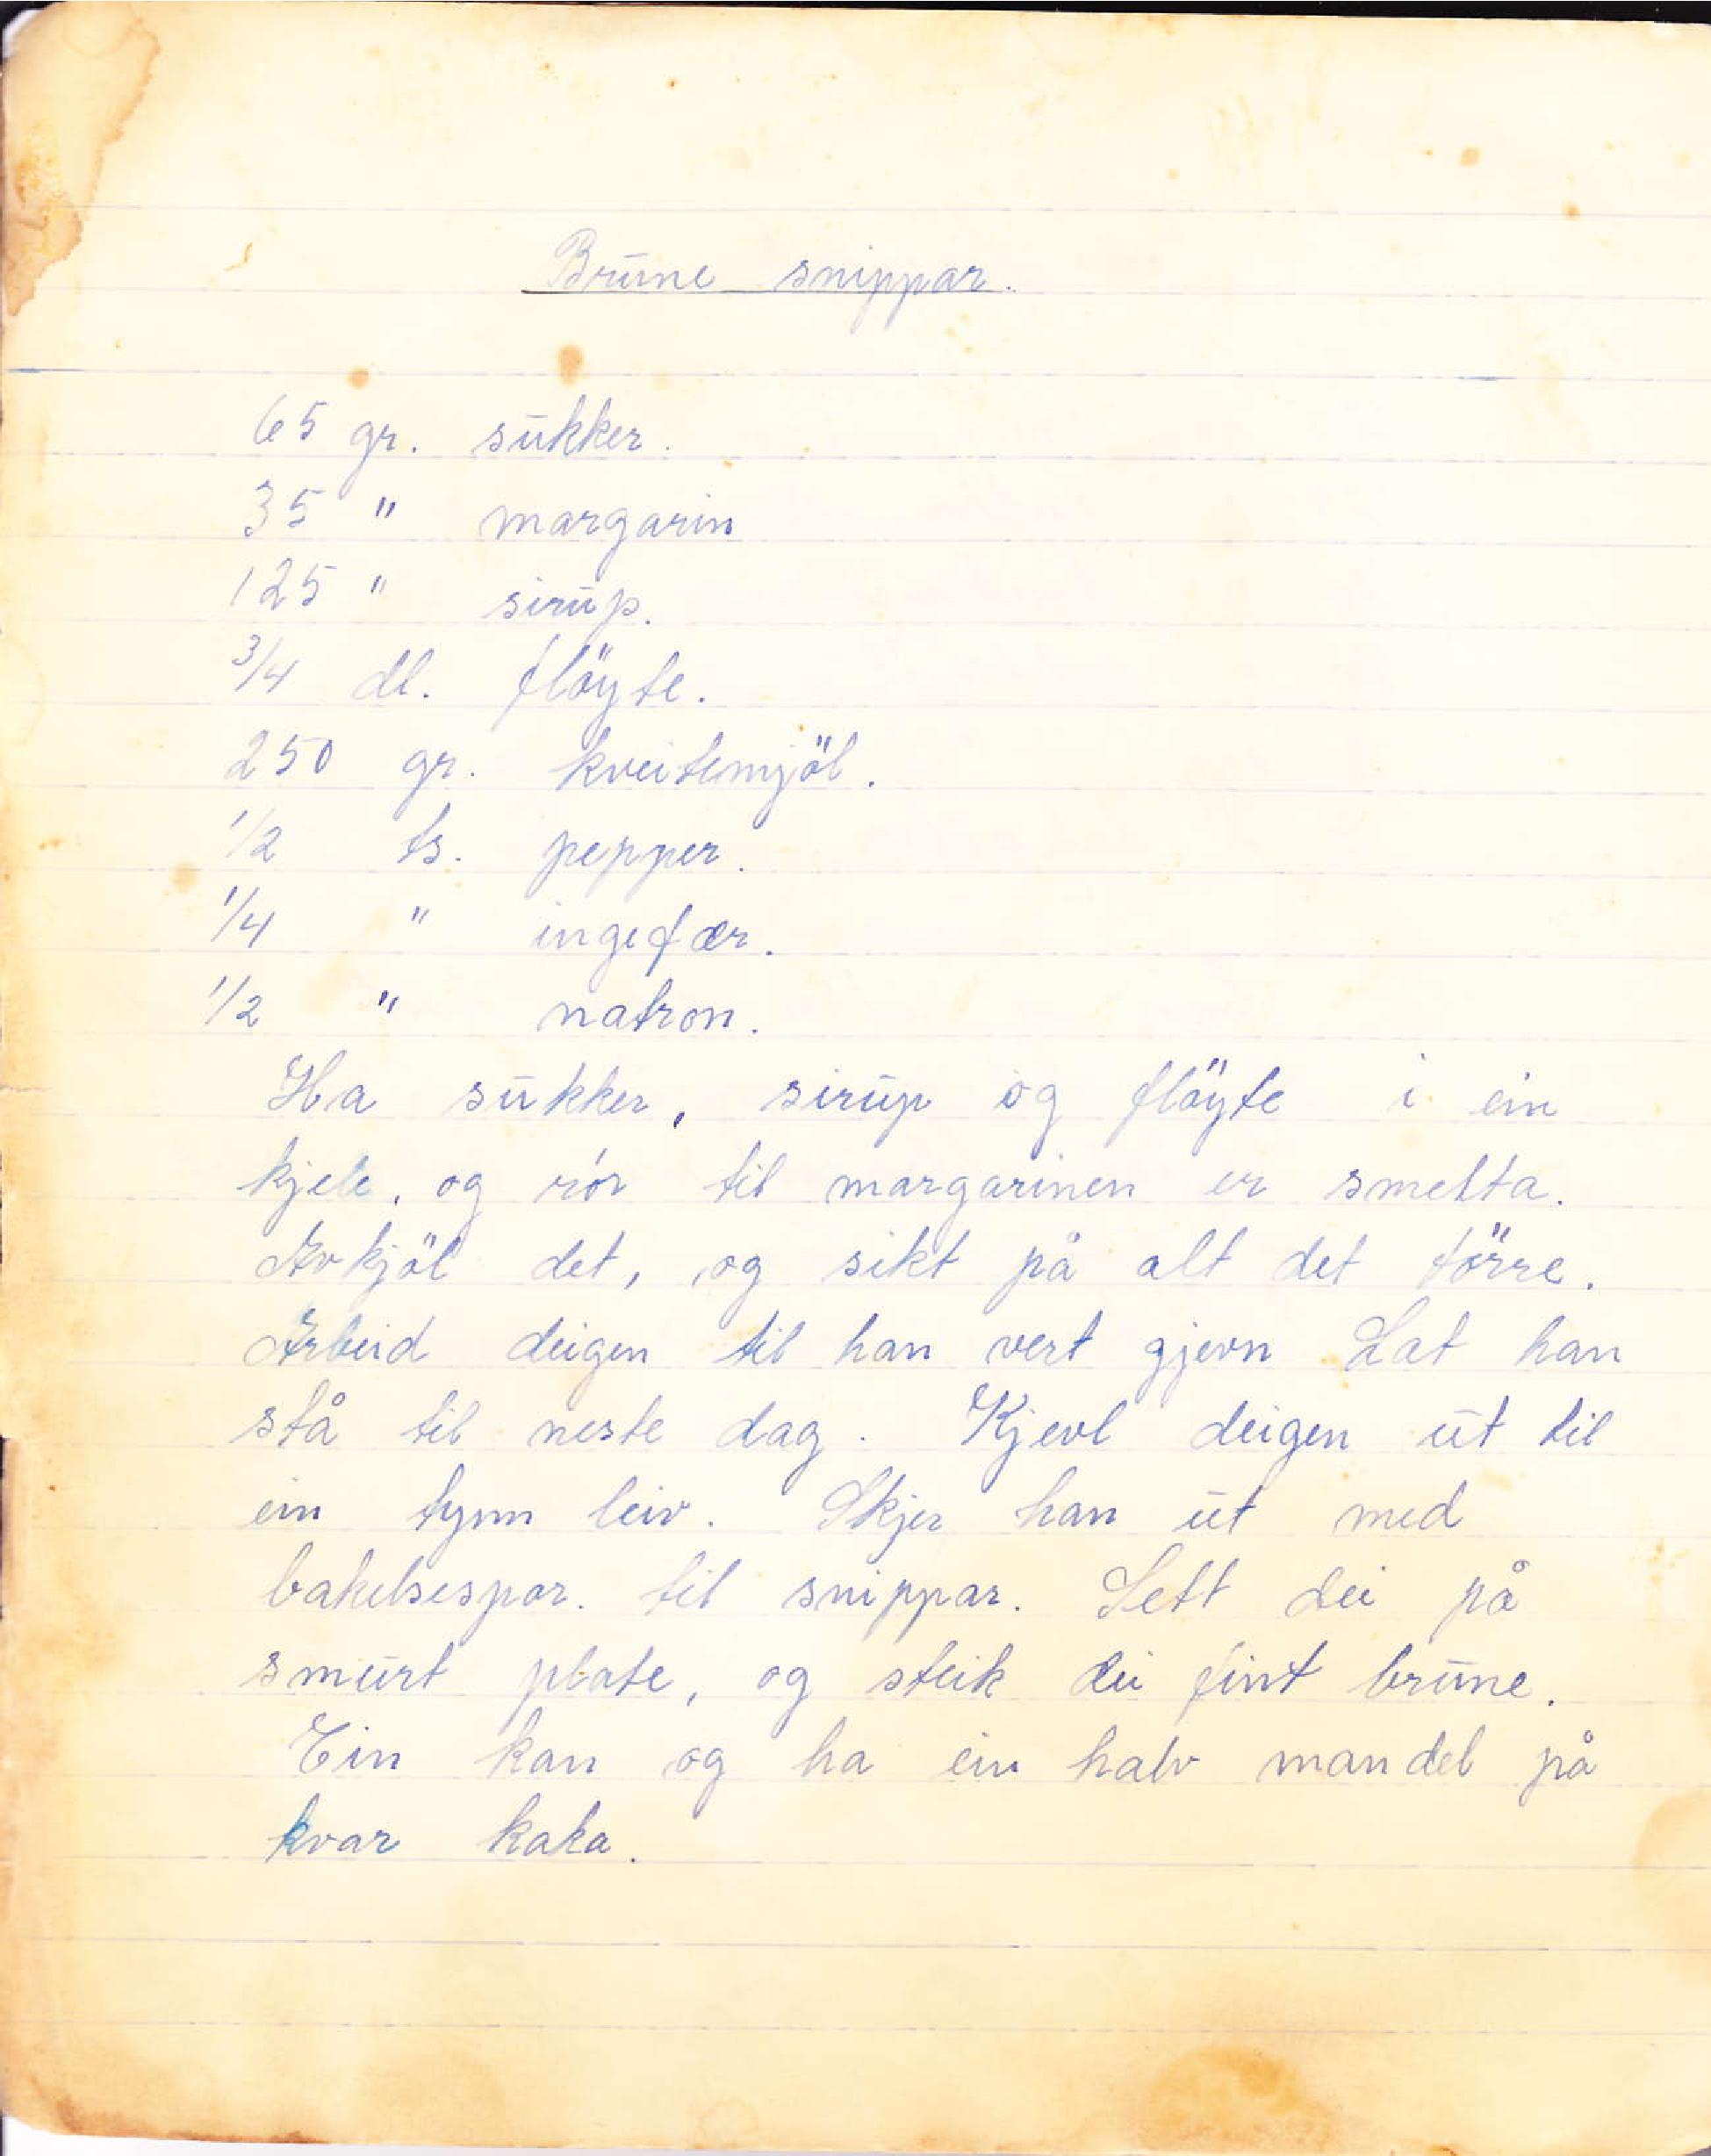 Brune snippar.
65 gr. sukker.
35 " margarin
125 " sirup.
3/4 dl. flöyte.
250 gr. kveitemjöl.
1/2 ts. pepper.
1/4 " ingefær.
1/2 " natron.
Ha sukker, sirup og flöyte i ein
kjele, og rör til margarinen er smelta.
Avkjöl det, og sikt på alt det törre.
Arbeid deigen til han vert gjevn Lat han
stå til neste dag. Kjevl deigen ut til
ein tynn leiv. Skjer han ut med
bakelsespor. til snippar. Sett dei på
smurt plate, og steik dei fint brune.
Ein kan og ha ein halv mandel på
kvar kaka.